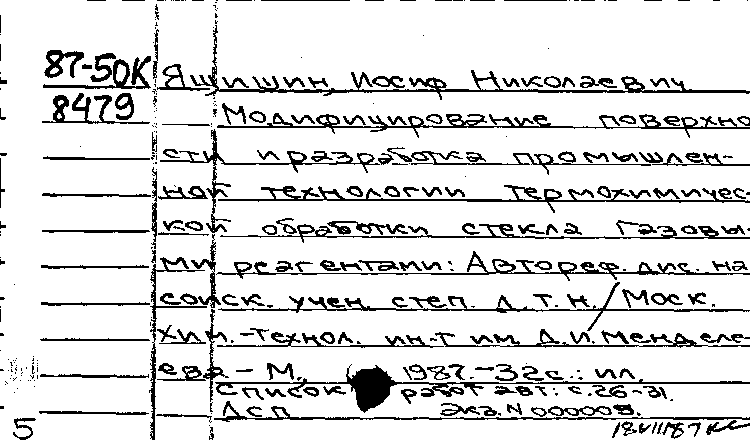 87-50К Яшишин, Иосиф Николаевич
8479 Модифицирование поверхно
сти и разработка промышлен-
ной технологии термохимичес-
кой обработки стекла газовы-
ми реагентами: Автореф. дис. на
соиск. учен. степ. д.т.н./Моск.
хим.-технол. ин-т им. Д.И. Менделе
ева – М., 1987.-32с.: ил.
Список работ авт: с.26-31.
ДСП Экз.N 000009.
5 18VII87